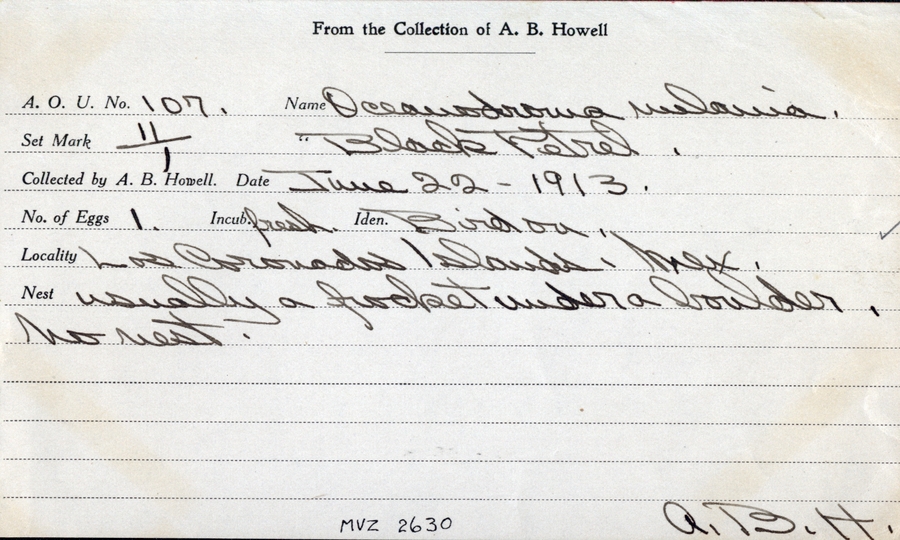 From the Collection of A. B. Howell
A. O. U. No. 107. Name Oceanodroma melania.
Set Mark 11/1 "Black Petrel.
Collected by A. B. Howell. Date June 22 - 1913.
No. of Eggs 1. Incub. fresh. Iden. Bird on.
Locality Los Coronados Islands. Mex.
Nest usually a pocket under a boulder,
No nest.
A. B. H.
MVZ 2630